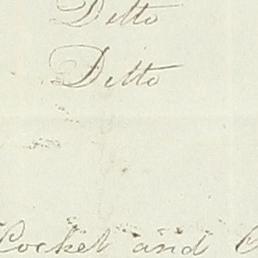 Ditto
Ditto
Cocket and